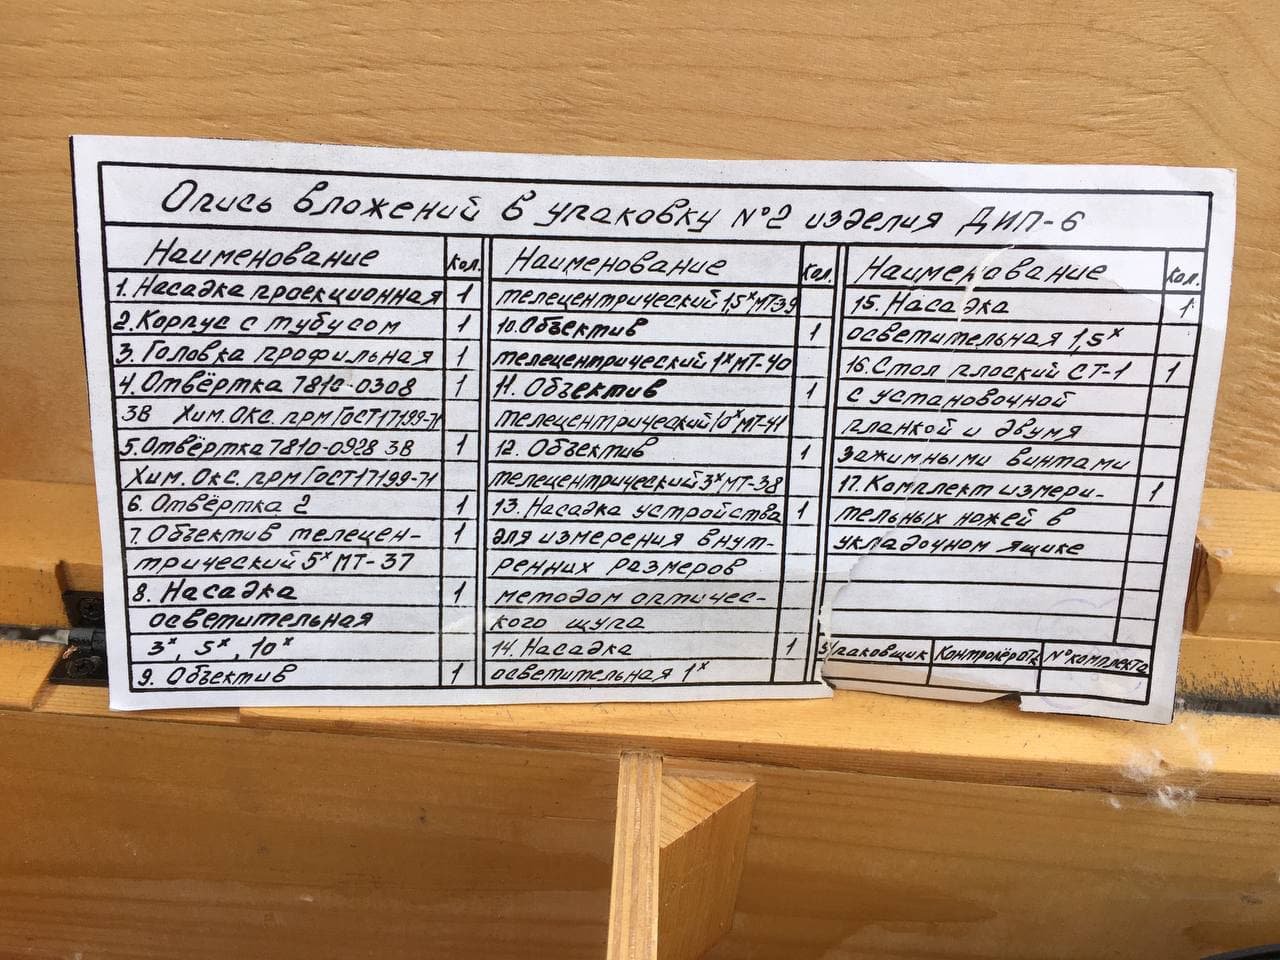 Опись вложений в упаковку №2 изделия ДИП-6
Наименование кол.
1. Насадка проекционная 1
2. Корпус с тубусом 1
3. Головка профильная 1
4. Отвёртка 7810-0308 1
3В Хим. Окс. прм ГОСТ 17199-71
5. Отвёртка 7810-0928 3В 1
Хим. Окс. прм ГОСТ 17199-71
6. Отвёртка 2 1
7. Объектив телецен- 1
трический 5ˣ МТ-37
8. Насадка 1
осветительная
3ˣ, 5ˣ, 10ˣ
9. Объектив 1
Наименование кол.
телецентрический 1,5ˣ МТ-39
10. Объектив 1
телецентрический 1ˣ МТ-40
11. Объектив 1
телецентрический 10ˣ МТ-41
12. Объектив 1
телецентрический 3ˣ МТ-38
13. Насадка устройства 1
для измерения внут-
ренних размеров
методом оптичес-
кого щупа
14. Насадка 1
осветительная 1ˣ
Наименование кол.
15. Насадка 1
осветительная 1,5ˣ
16. Стол плоский СТ-1 1
с установочной
планкой и двумя
зажимными винтами
17. Комплект измери- 1
тельных ножей в
укладочном ящике
Упаковщик Контролёр ОТК № комплекта